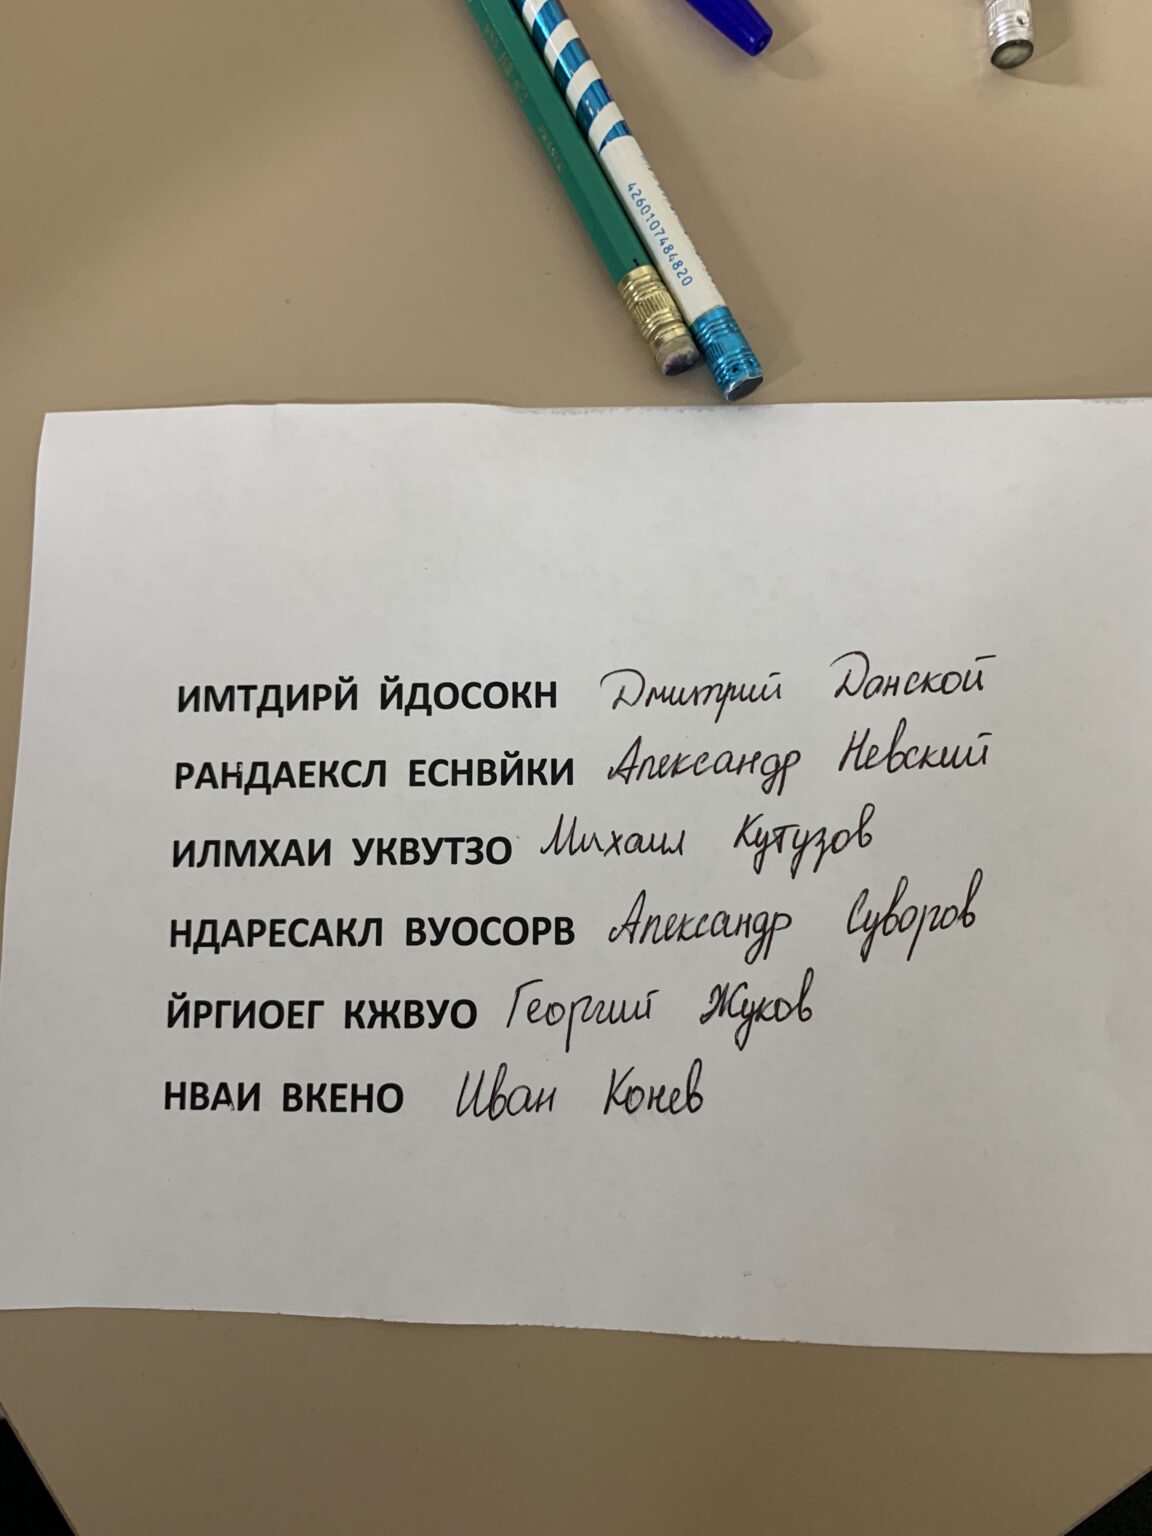 4260107484820
ИМТДИРЙ ЙДОСОКН Дмитрий Данской
РАНДАЕКСЛ ЕСНВЙКИ Александр Невский
ИЛМХАИ УКВУТЗО Михаил Кутузов
НДАРЕСАКЛ ВУОСОРВ Александр Суворов
ЙРГИОЕГ КЖВУО Георгий Жуков
НВАИ ВКЕНО Иван Конев